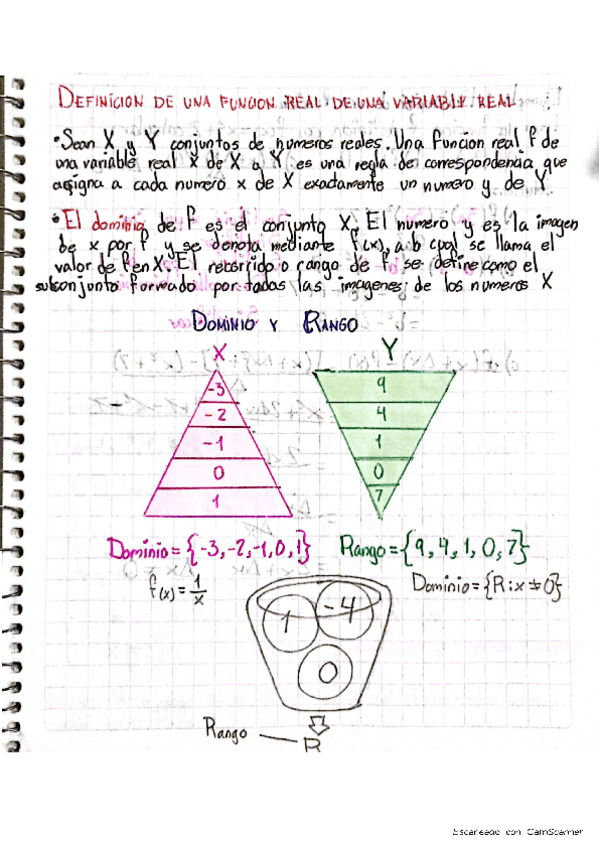 DEFINICION DE UNA FUNCION REAL DE UNA VARIABLE REAL
•Sean X y Y conjuntos de numeros reales. Una funcion real f de
una variable real x de X a Y es una regla de correspondencia que
asigna a cada numero x de X exactamente un numero y de Y
•El dominio de f es el conjunto X. El numero y es la imagen
de x por f y se denota mediante f(x), a lo cual se llama el
valor de f en X. El recorrido o rango de f se define como el
subconjunto formado por todas las imagenes de los numeros X
DOMINIO Y RANGO
X Y
-3 9
-2 4
-1 1
0 0
1 7
Dominio={-3,-2,-1,0,1} Rango={9,4,1,0,7}
f(x)=1/x Dominio={R:x≠0}
1 -4
0
Rango — R
Escaneado con CamScanner